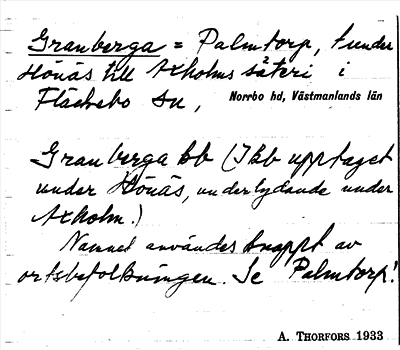 Granberga = Palmtorp, t. under
Hönäs till Axholms säteri i
Fläckebo sn, Norrbo hd, Västmanlands län
Granberga bb (I Kb upptaget
under Hönäs, underlydande under
Axholm.)
Namnet användes knappt av
ortsbefolkningen. Se Palmtorp!
A. THORFORS 1933